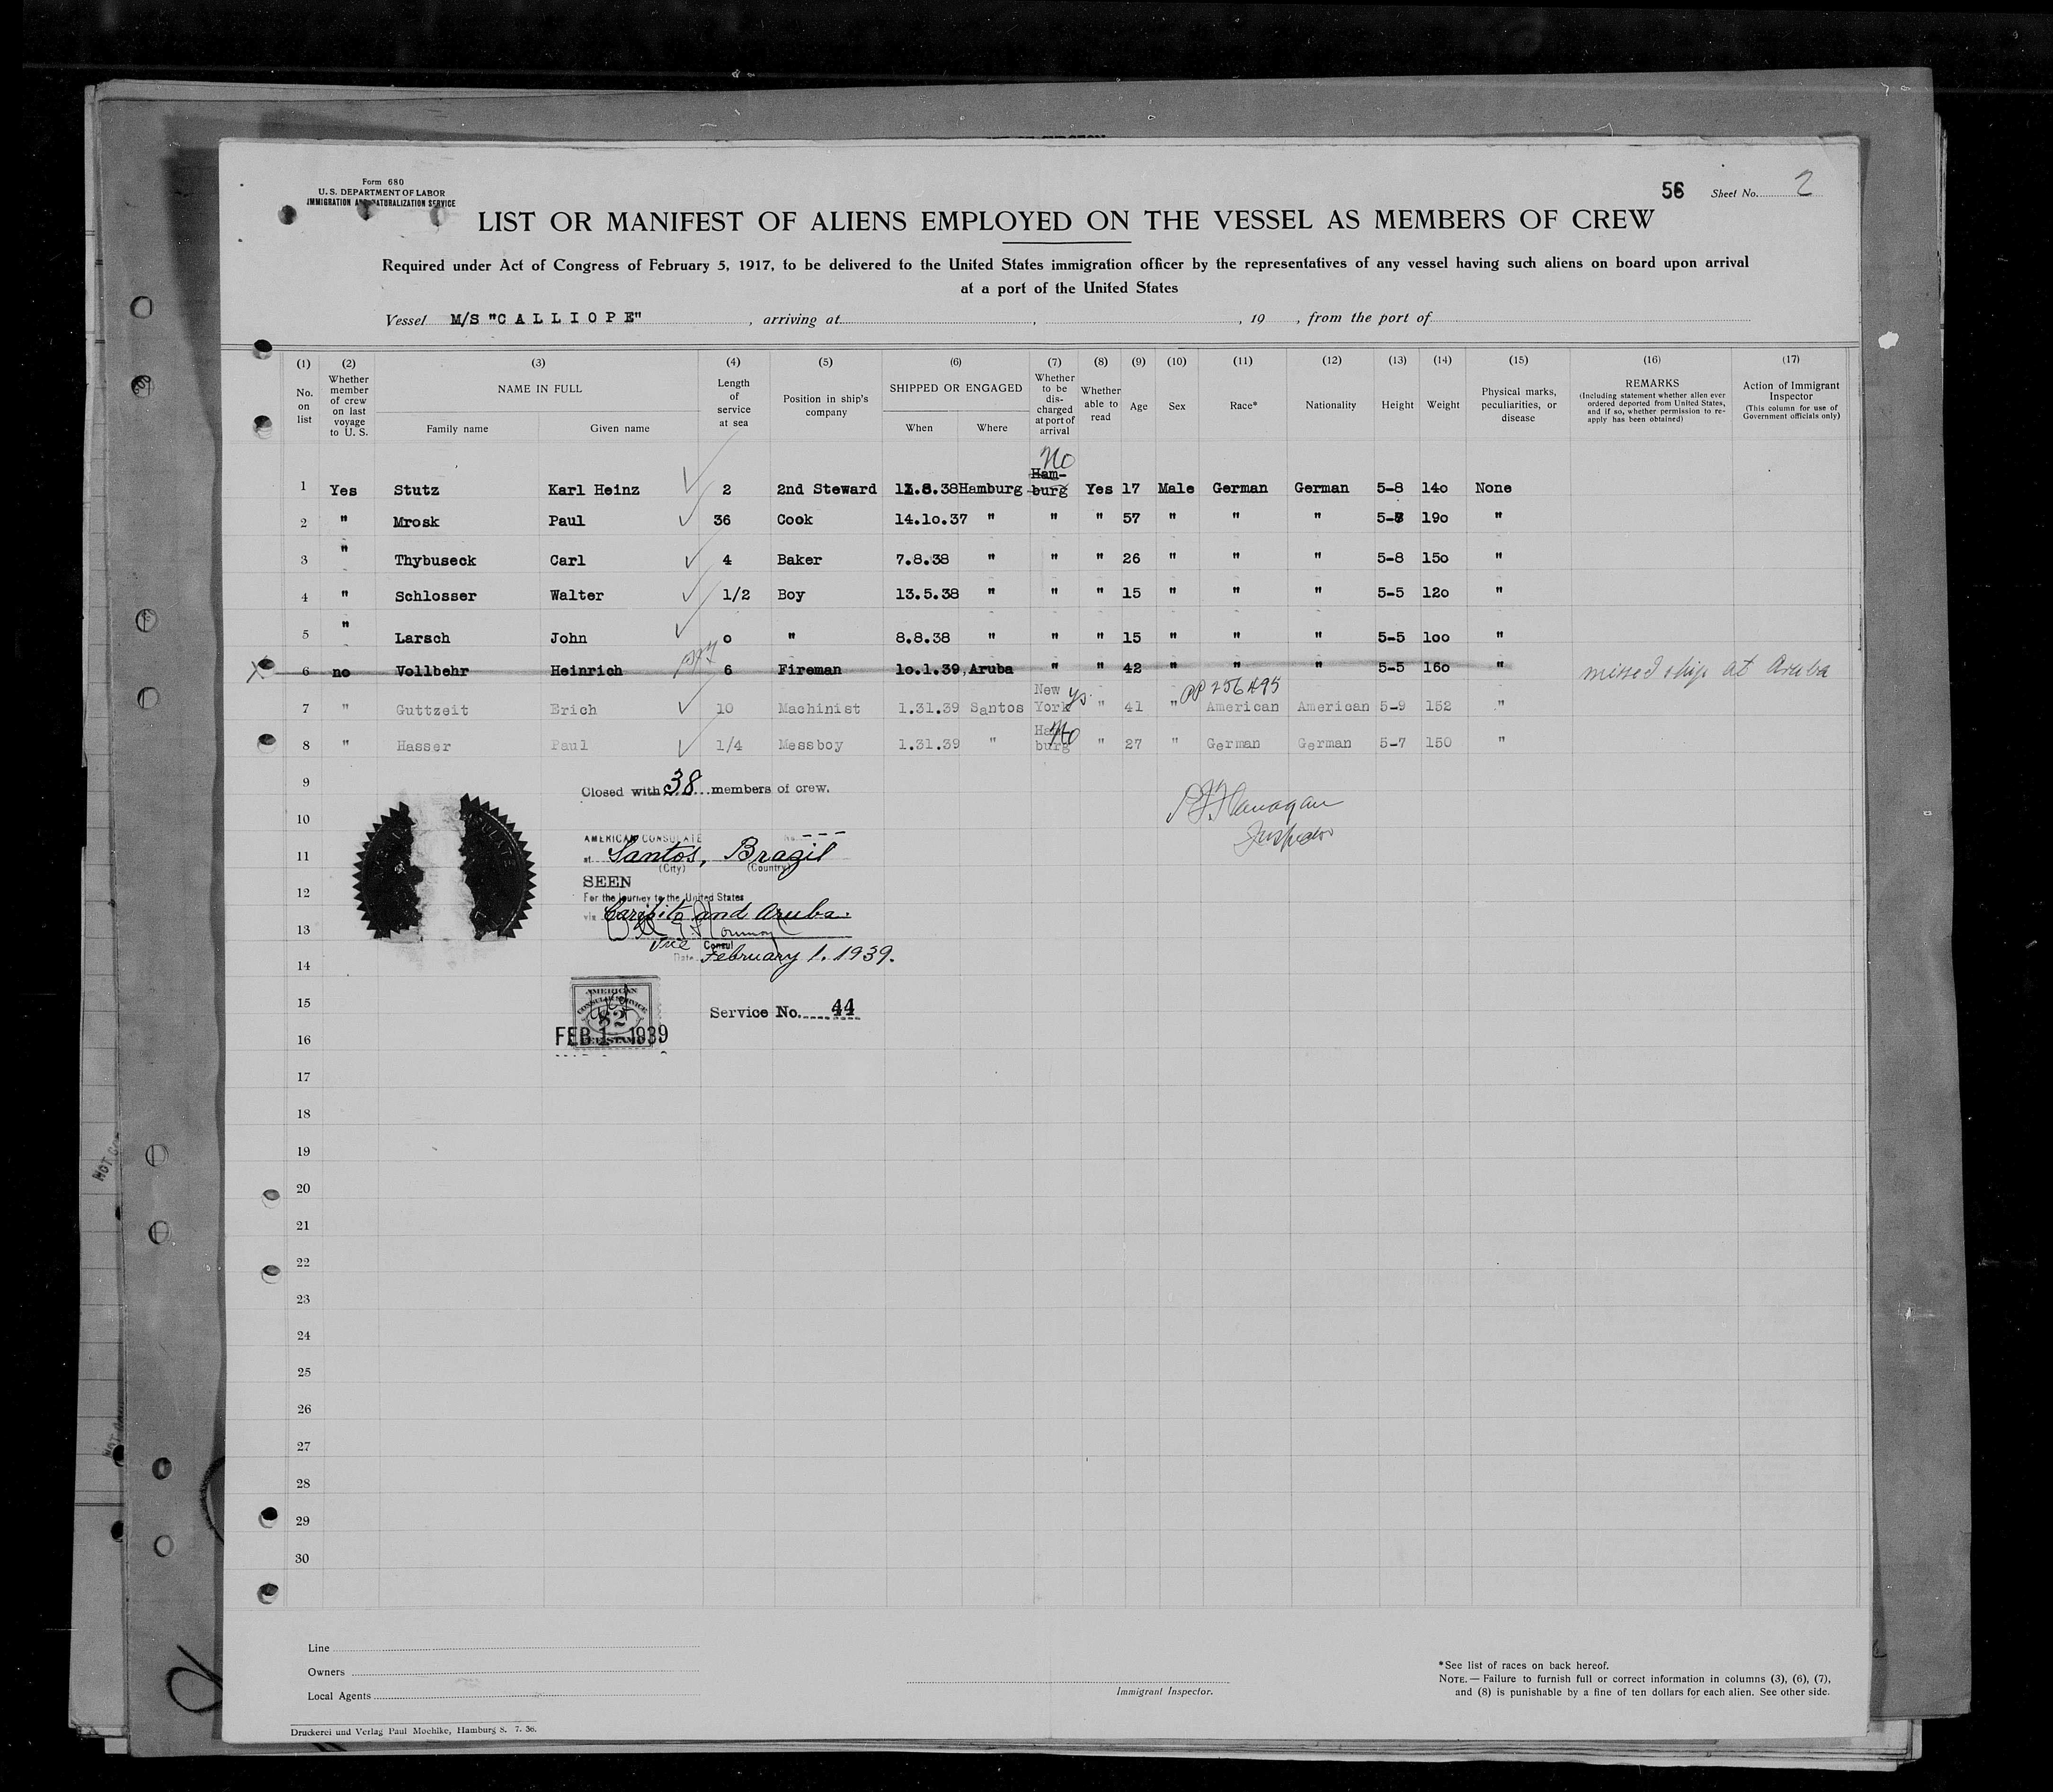 Form 680
U. S. DEPARTMENT OF LABOR
IMMIGRATION AND NATURALIZATION SERVICE
56 Sheet No. 2
LIST OR MANIFEST OF ALIENS EMPLOYED ON THE VESSEL AS MEMBERS OF CREW
Required under Act of Congress of February 5, 1917, to be delivered to the United States immigration officer by the representatives of any vessel having such aliens on board upon arrival
at a port of the United States
Vessel M/S "CALLIOPE", arriving at , , 19 , from the port of
(1) No. on list
(2) Whether member of crew on last voyage to U. S.
(3) NAME IN FULL
Family name Given name
(4) Length of service at sea
(5) Position in ship's company
(6) SHIPPED OR ENGAGED
When Where
(7) Whether to be discharged at port of arrival
(8) Whether able to read
(9) Age
(10) Sex
(11) Race*
(12) Nationality
(13) Height
(14) Weight
(15) Physical marks, peculiarities, or disease
(16) REMARKS
(Including statement whether alien ever ordered deported from United States, and if so, whether permission to re-apply has been obtained)
(17) Action of Immigrant Inspector
(This column for use of Government officials only)
No
1 Yes Stutz Karl Heinz 2 2nd Steward 11.8.38 Hamburg Ham-burg Yes 17 Male German German 5-8 14o None
2 " Mrosk Paul 36 Cook 14.1o.37 " " " 57 " " " 5-8 19o "
3 " Thybuseck Carl 4 Baker 7.8.38 " " " 26 " " " 5-8 15o "
4 " Schlosser Walter 1/2 Boy 13.5.38 " " " 15 " " " 5-5 12o "
5 " Larsch John o " 8.8.38 " " " 15 " " " 5-5 1oo "
6 no Vollbehr Heinrich 6 Fireman 1o.1.39, Aruba " " 42 " " " 5-5 16o " missed ship at Aruba
7 " Guttzeit Erich 10 Machinist 1.31.39 Santos New York ys. " 41 " PP 256495 American American 5-9 152 "
8 " Hasser Paul 1/4 Messboy 1.31.39 " Hamburg No " 27 " German German 5-7 150 "
9
Closed with 38 members of crew.
P.J. Flanagan
Inspector
10
AMERICAN CONSULATE No. ---
11
at Santos, Brazil
(City) (Country)
SEEN
12
For the journey to the United States
via Caripito and Aruba.
13
Vice Consul
Date February 1. 1939.
14
AMERICAN
CONSULAR SERVICE
$2
FEE STAMP
15
Service No. 44
16
FEB 1 - 1939
17
18
19
20
21
22
23
24
25
26
27
28
29
30
Line
Owners
Local Agents
Immigrant Inspector.
*See list of races on back hereof.
NOTE.— Failure to furnish full or correct information in columns (3), (6), (7),
and (8) is punishable by a fine of ten dollars for each alien. See other side.
Druckerei und Verlag Paul Moehlke, Hamburg 8. 7. 36.